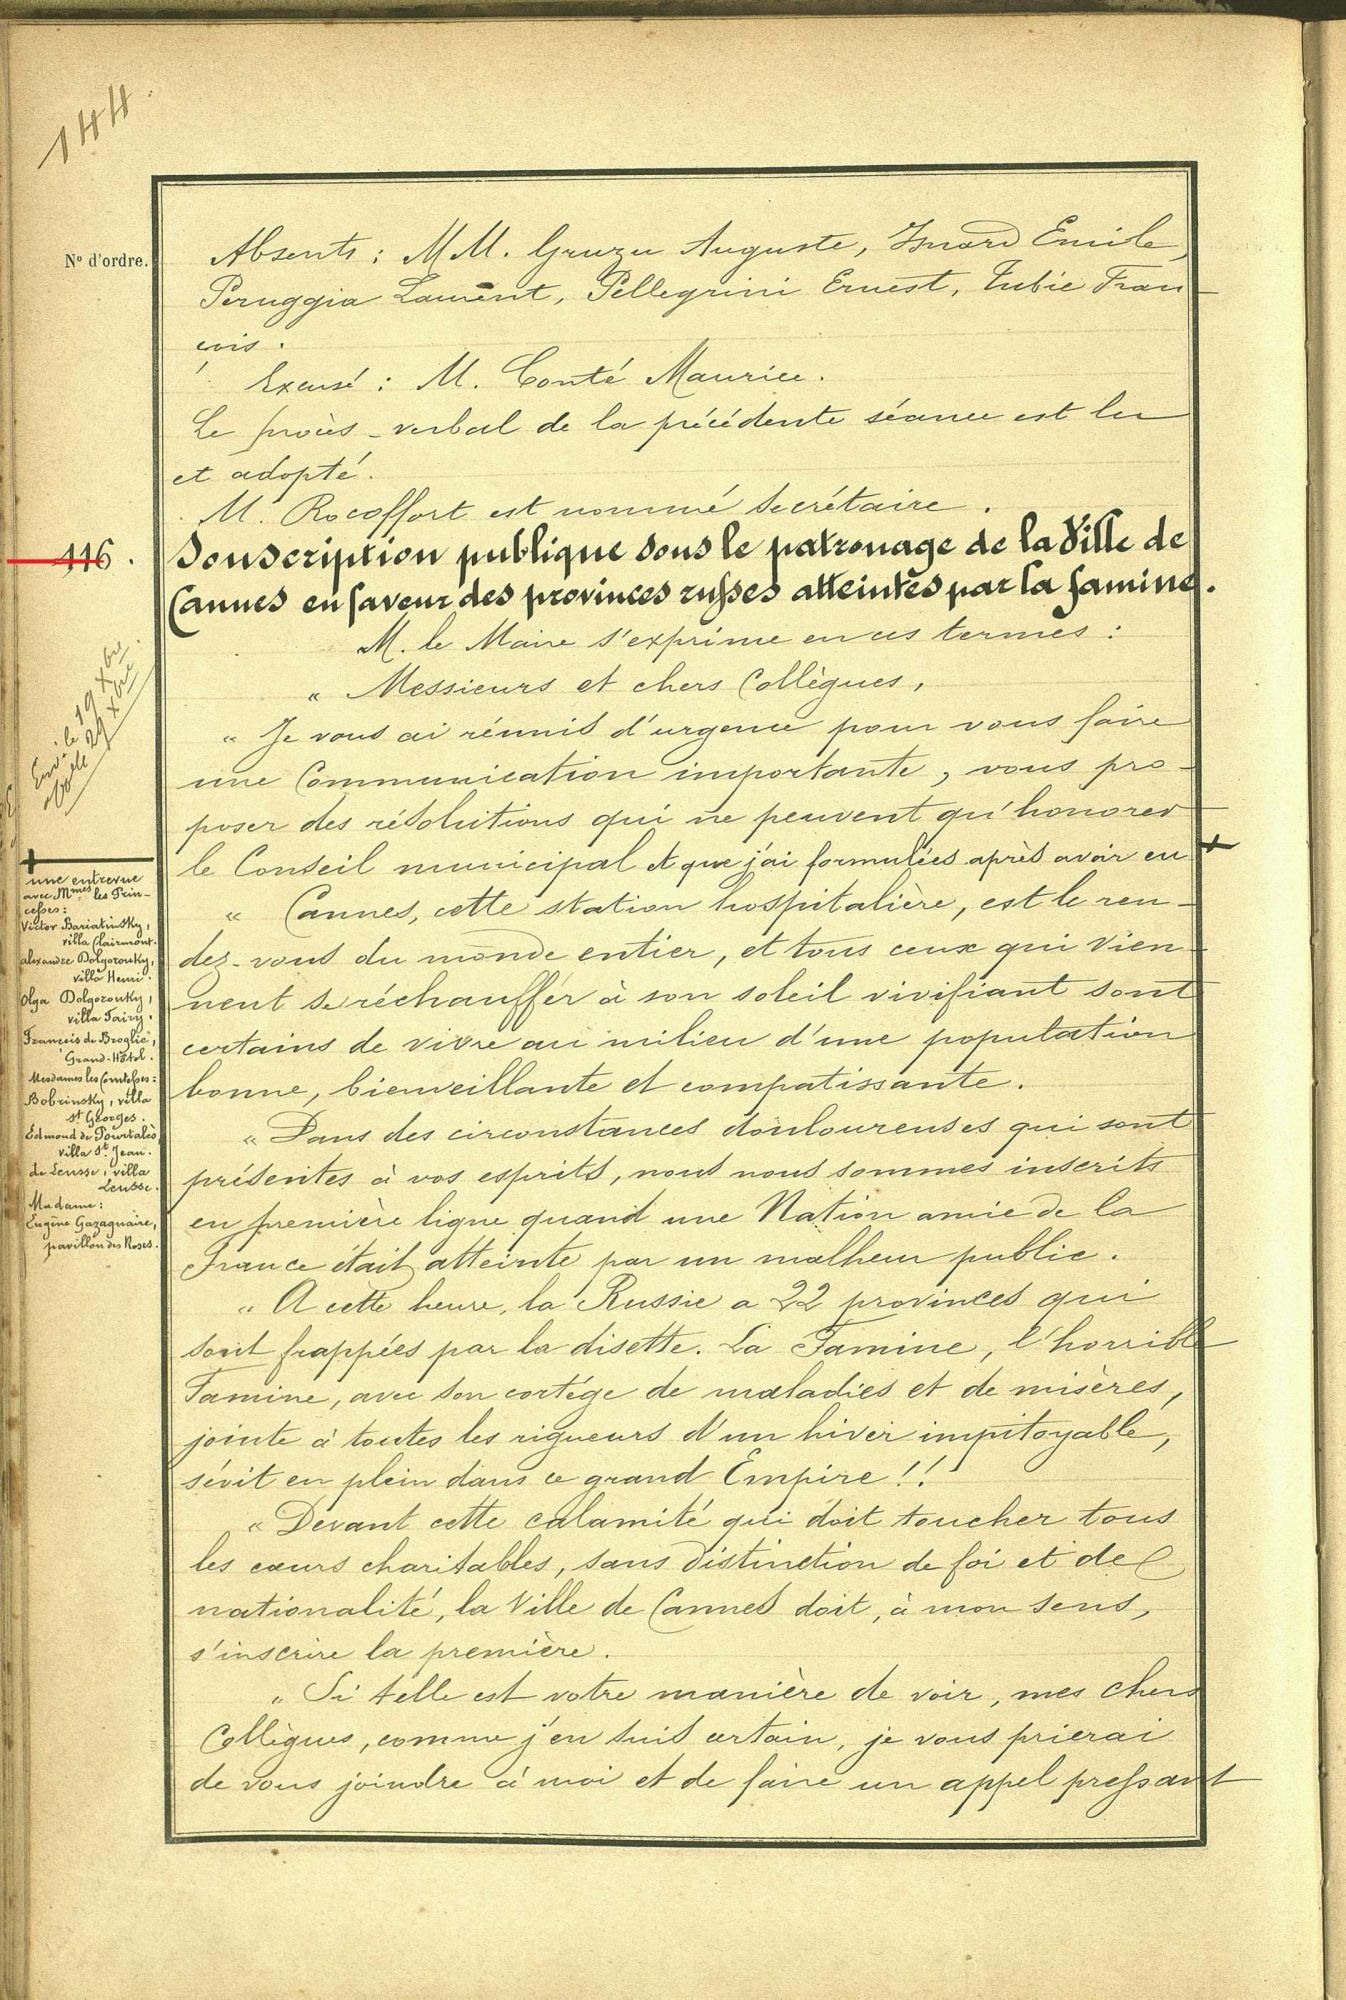 144.
N° d'ordre.
Absents : MM. Gruzu Auguste, Isnard Emile,
Peruggia Laurent, Pellegrini Ernest, Tubie Fran-
çois.
Excusé : M. Conté Maurice.
Le procès-verbal de la précédente séance est lu
et adopté.
M. Rocoffort est nommé secrétaire.
116.
Souscription publique sous le patronage de la Ville de
Cannes en faveur des provinces russes atteintes par la famine.
M. le Maire s'exprime en ces termes :
" Messieurs et chers Collègues,
" Je vous ai réunis d'urgence pour vous faire
une Communication importante, vous pro-
poser des résolutions qui ne peuvent qu'honorer
le Conseil municipal et que j'ai formulées après avoir eu +
" Cannes, cette station hospitalière, est le ren-
dez-vous du monde entier, et tous ceux qui vien-
nent se réchauffer à son soleil vivifiant sont
certains de vivre au milieu d'une population
bonne, bienveillante et compatissante.
" Dans des circonstances douloureuses qui sont
présentes à vos esprits, nous nous sommes inscrits
en première ligne quand une Nation amie de la
France était atteinte par un malheur public.
" A cette heure, la Russie a 22 provinces qui
sont frappées par la disette. La Famine, l'horrible
Famine, avec son cortége de maladies et de misères,
jointe à toutes les rigueurs d'un hiver impitoyable,
sévit en plein dans ce grand Empire !!
" Devant cette calamité qui doit toucher tous
les cœurs charitables, sans distinction de foi et de
nationalité, la Ville de Cannes doit, à mon sens,
s'inscrire la première.
" Si telle est votre manière de voir, mes chers
Collègues, comme j'en suis certain, je vous prierai
de vous joindre à moi et de faire un appel pressant
Env. le 19 Xbre
le 29 Xbre
+
une entrevue
avec Mmes les Prin-
cesses :
Victor Bariatinsky,
villa Clairmont.
Alexandre Dolgorouky,
villa Henri.
Olga Dolgorouky,
villa Fairy.
François de Broglie,
Grand-Hôtel.
Mesdames les Comtesses :
Bobrinsky, villa
St Georges.
Edmond de Pourtalès
villa St Jean.
de Leusse, villa
Leusse.
Madame :
Eugène Gazagnaire,
pavillon des Roses.